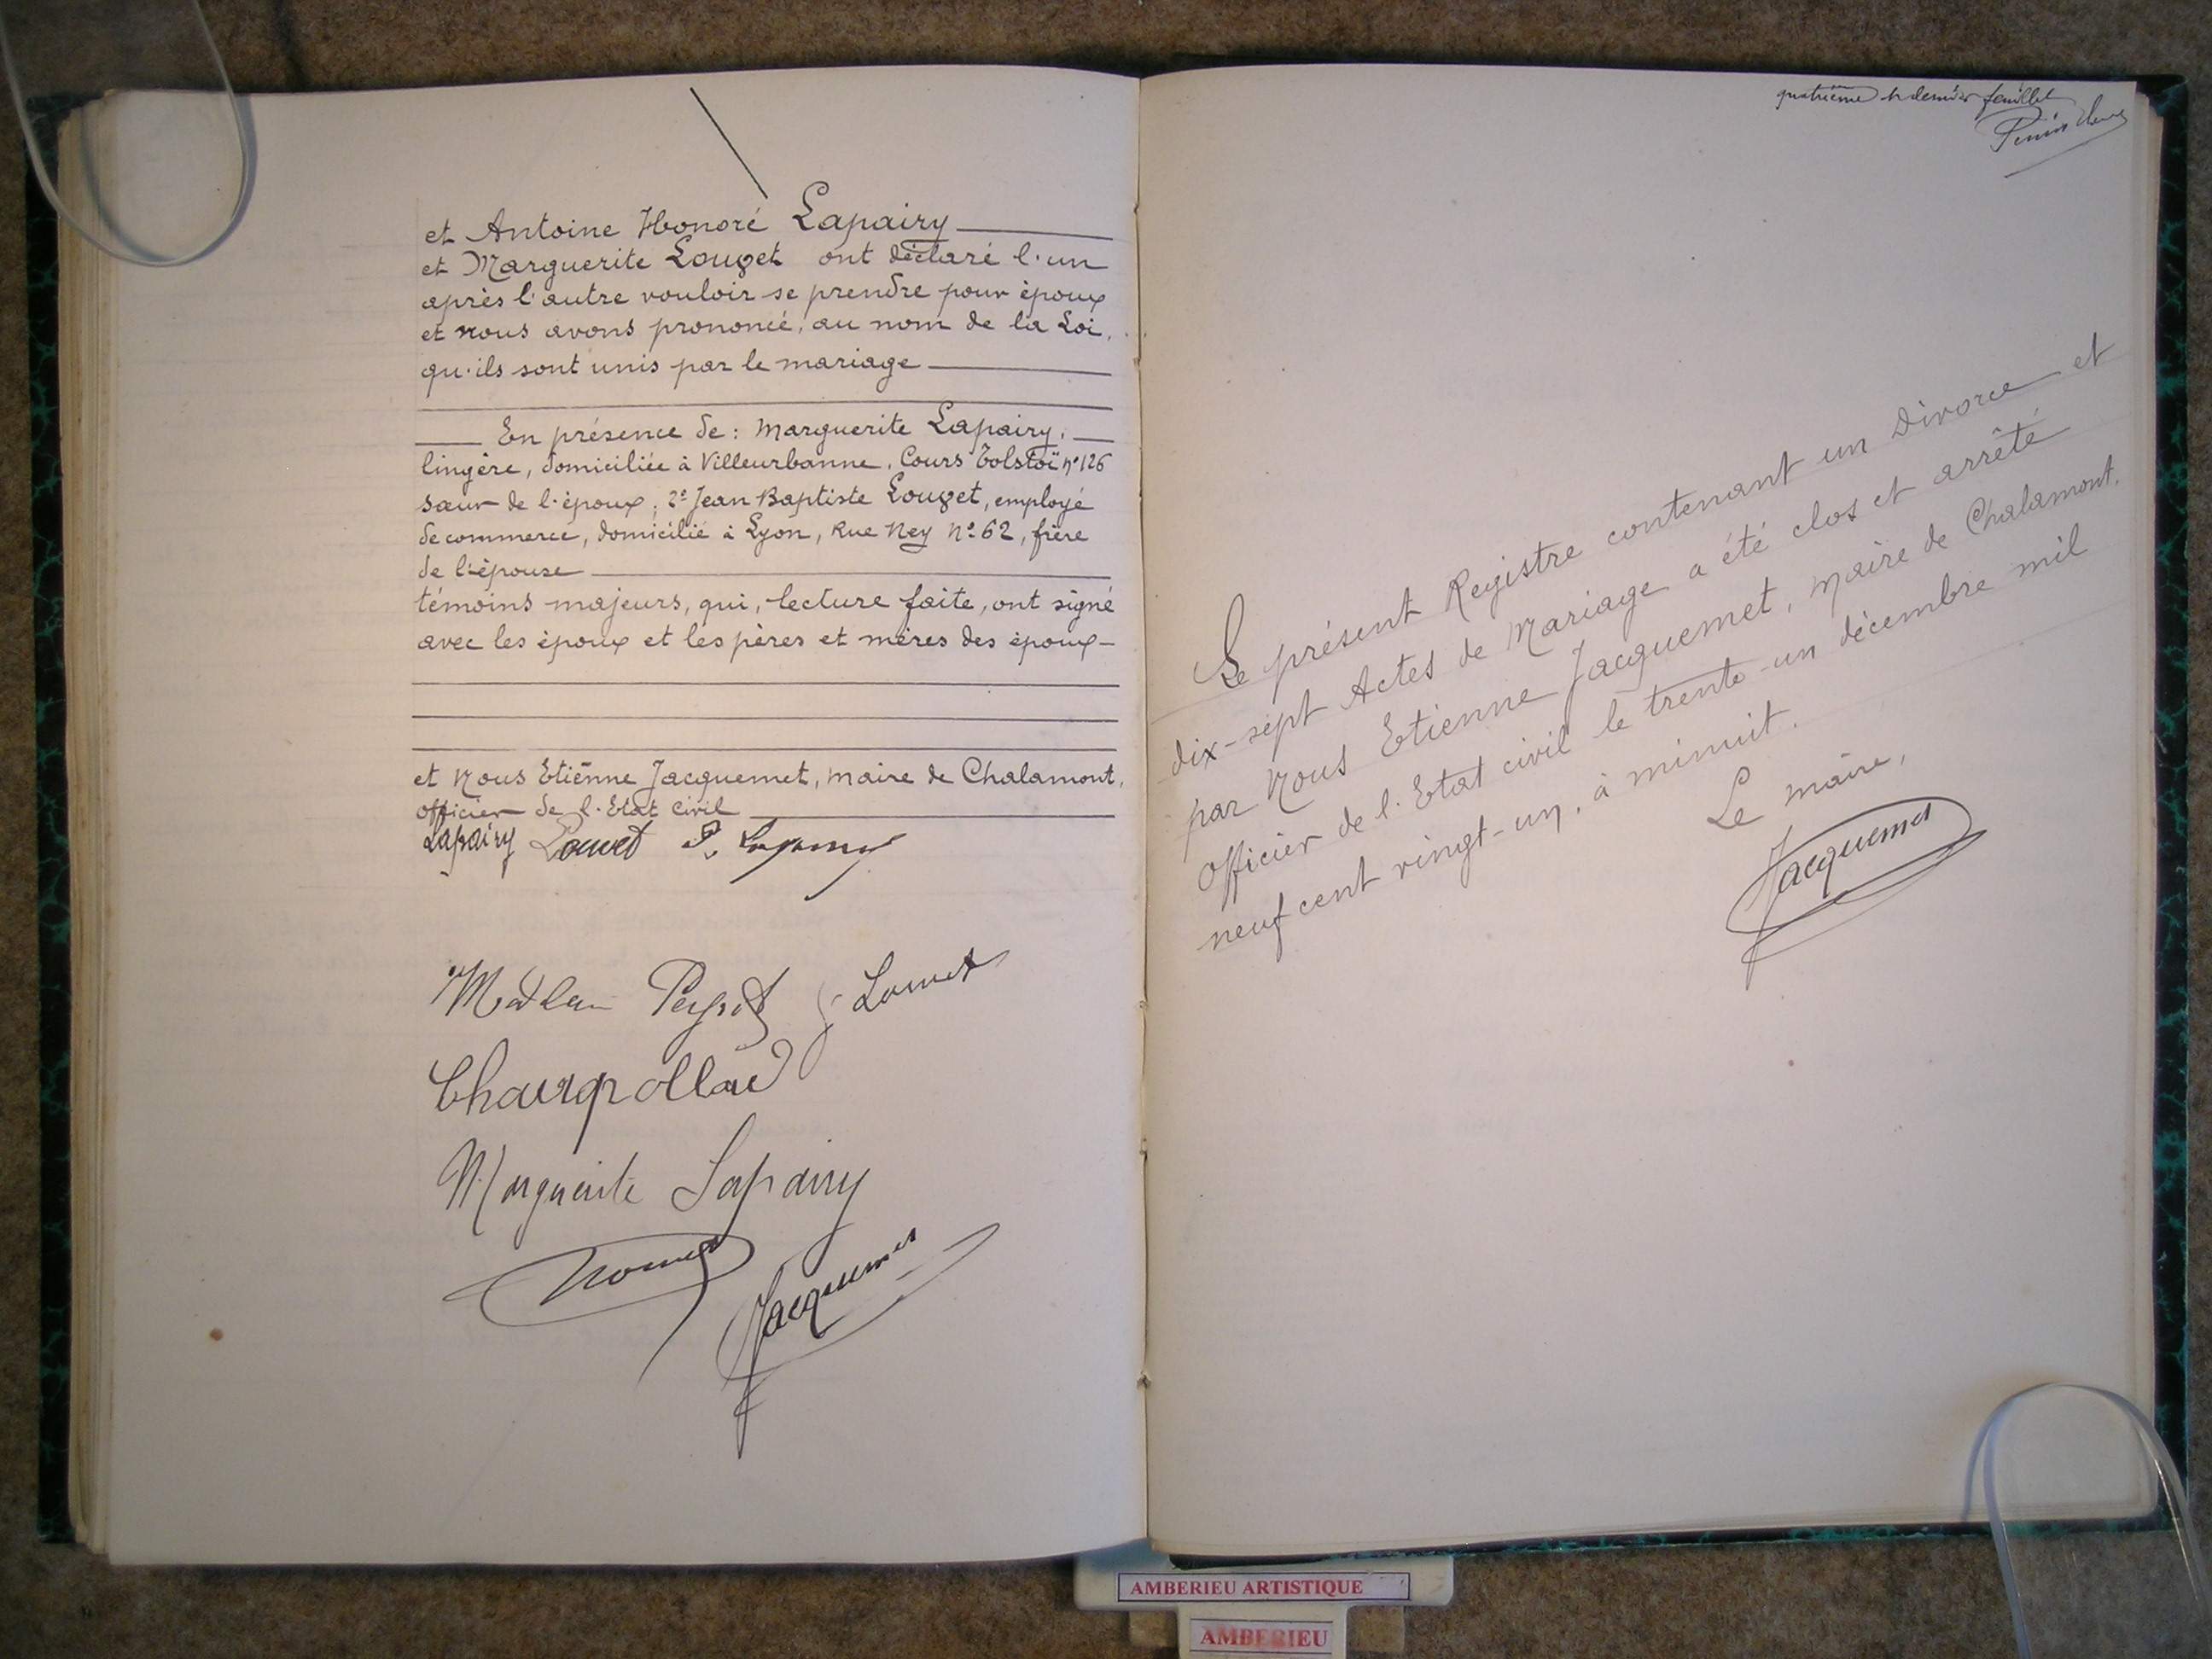 et Antoine Honoré Lapairy
et Marguerite Louvet ont déclaré l'un
après l'autre vouloir se prendre pour époux
et nous avons prononcé, au nom de la Loi,
qu'ils sont unis par le mariage
En présence de : Marguerite Lapairy,
lingère, domiciliée à Villeurbanne, Cours Tolstoï nº 126
sœur de l'époux, 2º Jean Baptiste Louvet, employé
de commerce, domicilié à Lyon, Rue Ney Nº 62, frère
de l'épouse
témoins majeurs, qui, lecture faite, ont signé
avec les époux et les pères et mères des époux
et Nous Etienne Jacquemet, maire de Chalamont,
officier de l'Etat civil
Lapairy Louvet
Louvet
Marguerite Lapairy
Jacquemet
quatrième et dernier feuillet
Le présent Registre contenant un Divorce et
dix-sept Actes de Mariage a été clos et arrêté
par Nous Etienne Jacquemet, Maire de Chalamont,
Officier de l'Etat civil le trente-un décembre mil
neuf cent vingt-un, à minuit.
Le maire,
Jacquemet
AMBERIEU ARTISTIQUE
AMBERIEU